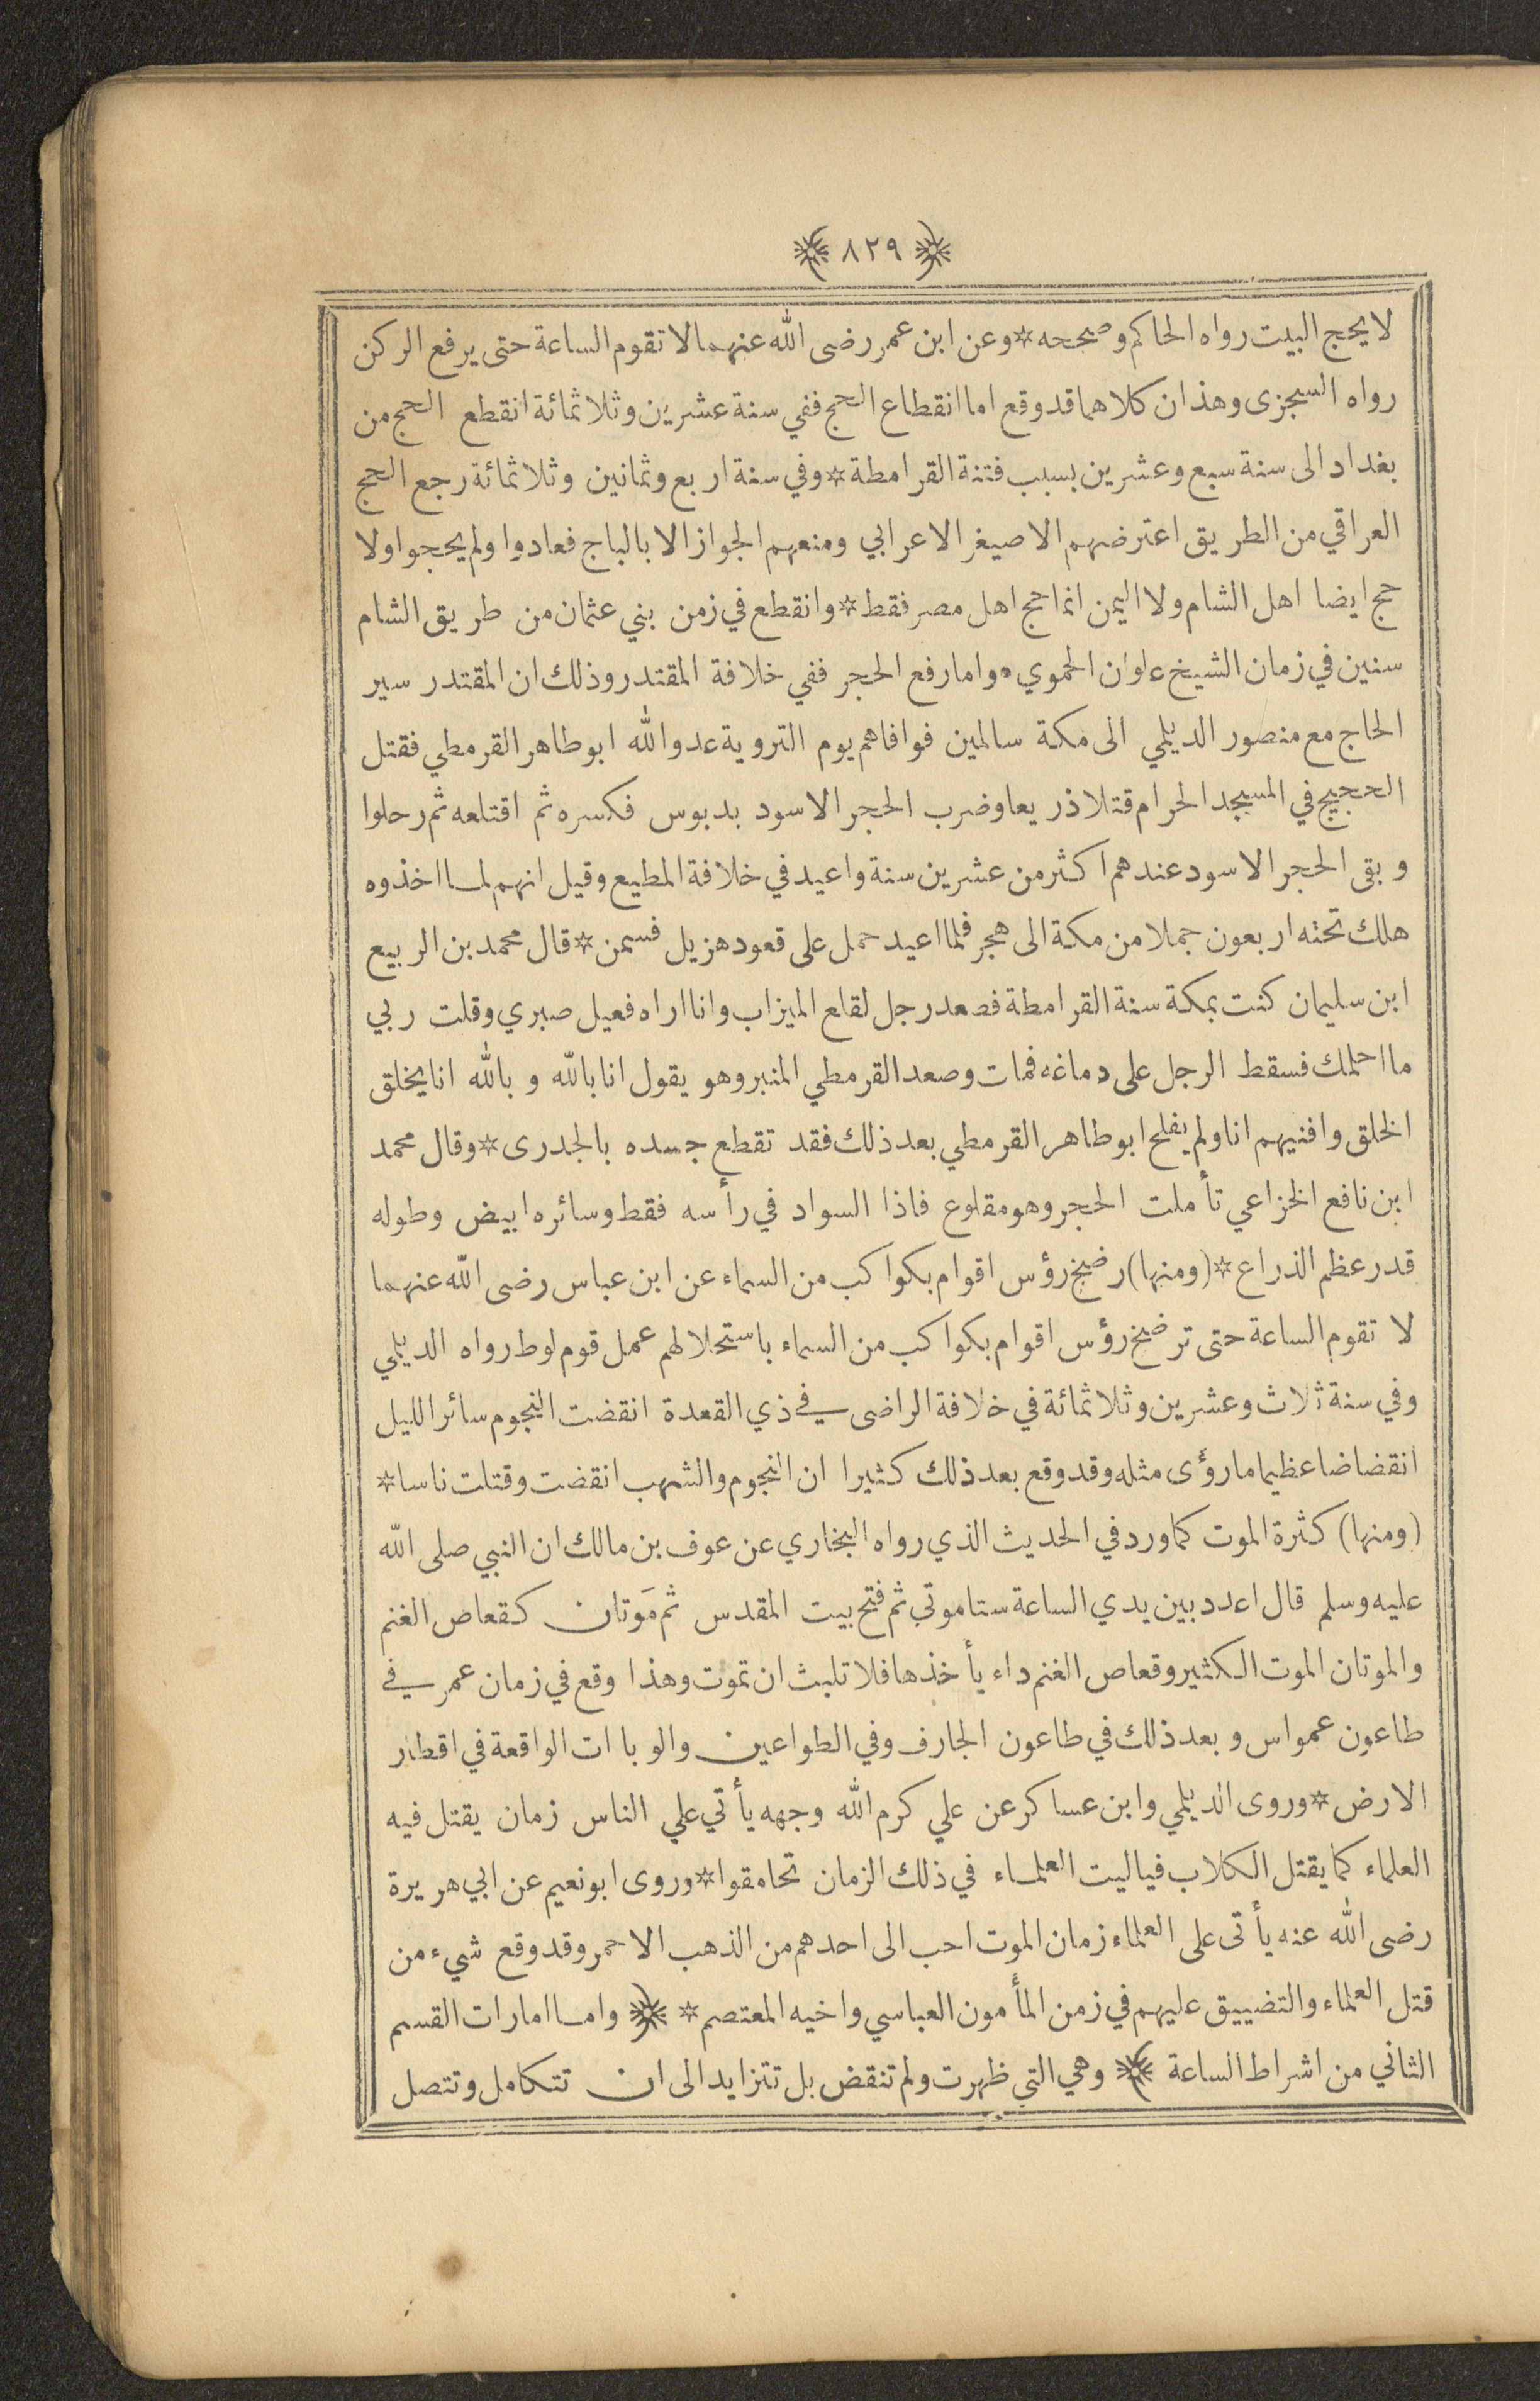 ﴿ ٨٢٩ ﴾
لا يحج البيت رواه الحاكم وصححه * وعن ابن عمر رضى الله عنهما لا تقوم الساعة حتى يرفع الركن
رواه السجزى وهذان كلاهما قد وقع اما انقطاع الحج ففي سنة عشرين وثلاثمائة انقطع الحج من
بغداد الى سنة سبع وعشرين بسبب فتنة القرامطة * وفي سنة اربع وثمانين وثلاثمائة رجع الحج
العراقي من الطريق اعترضهم الاصيغر الاعرابي ومنعهم الجواز الا بالباج فعادوا ولم يحجوا ولا
حج ايضا اهل الشام ولا اليمن انما حج اهل مصر فقط * وانقطع في زمن بني عثمان من طريق الشام
سنين في زمان الشيخ علوان الحموي * واما رفع الحجر ففي خلافة المقتدر وذلك ان المقتدر سير
الحاج مع منصور الديلمي الى مكة سالمين فوافاهم يوم التروية عدو الله ابو طاهر القرمطي فقتل
الحجيج في المسجد الحرام قتلا ذريعا وضرب الحجر الاسود بدبوس فكسره ثم اقتلعه ثم رحلوا
وبقى الحجر الاسود عندهم اكثر من عشرين سنة واعيد في خلافة المطيع وقيل انهم لما اخذوه
هلك تحته اربعون جملا من مكة الى هجر فلما اعيد حمل على قعود هزيل فسمن * قال محمد بن الربيع
ابن سليمان كنت بمكة سنة القرامطة فصعد رجل لقلع الميزاب وانا اراه فعيل صبري وقلت ربي
ما احلمك فسقط الرجل على دماغه فمات وصعد القرمطي المنبر وهو يقول انا بالله و بالله انا يخلق
الخلق وافنيهم انا ولم يفلح ابو طاهر القرمطي بعد ذلك فقد تقطع جسده بالجدرى * وقال محمد
ابن نافع الخزاعي تأملت الحجر وهو مقلوع فاذا السواد في رأسه فقط وسائره ابيض وطوله
قدر عظم الذراع * (ومنها) رضخ رؤس اقوام بكواكب من السماء عن ابن عباس رضى الله عنهما
لا تقوم الساعة حتى ترضخ رؤس اقوام بكواكب من السماء باستحلالهم عمل قوم لوط رواه الديلمي
وفي سنة ثلاث وعشرين وثلاثمائة في خلافة الراضى في ذي القعدة انقضت النجوم سائر الليل
انقضاضا عظيما ما رؤى مثله وقد وقع بعد ذلك كثيرا ان النجوم والشهب انقضت وقتلت ناسا *
(ومنها) كثرة الموت كما ورد في الحديث الذي رواه البخاري عن عوف بن مالك ان النبي صلى الله
عليه وسلم قال اعدد بين يدي الساعة ستا موتي ثم فتح بيت المقدس ثم مَوتان كقعاص الغنم
والموتان الموت الكثير وقعاص الغنم داء يأخذها فلا تلبث ان تموت وهذا وقع في زمان عمر في
طاعون عمواس وبعد ذلك في طاعون الجارف وفي الطواعين والوباات الواقعة في اقطار
الارض * وروى الديلمي وابن عساكر عن علي كرم الله وجهه يأتي علي الناس زمان يقتل فيه
العلماء كما يقتل الكلاب فياليت العلماء في ذلك الزمان تحامقوا * وروى ابو نعيم عن ابي هريرة
رضى الله عنه يأتى على العلماء زمان الموت احب الى احدهم من الذهب الاحمر وقد وقع شيء من
قتل العلماء والتضييق عليهم في زمن المأمون العباسي واخيه المعتصم * ﴿ واما امارات القسم
الثاني من اشراط الساعة ﴾ وهي التي ظهرت ولم تنقض بل تتزايد الى ان تتكامل وتتصل